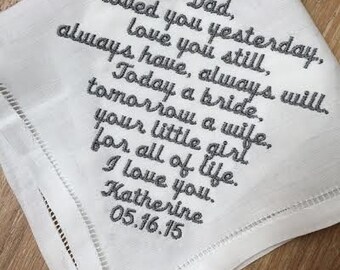 Dad,
loved you yesterday,
love you still,
always have, always will.
Today a bride,
tomorrow a wife,
your little girl
for all of life.
I love you.
Katherine
05.16.15